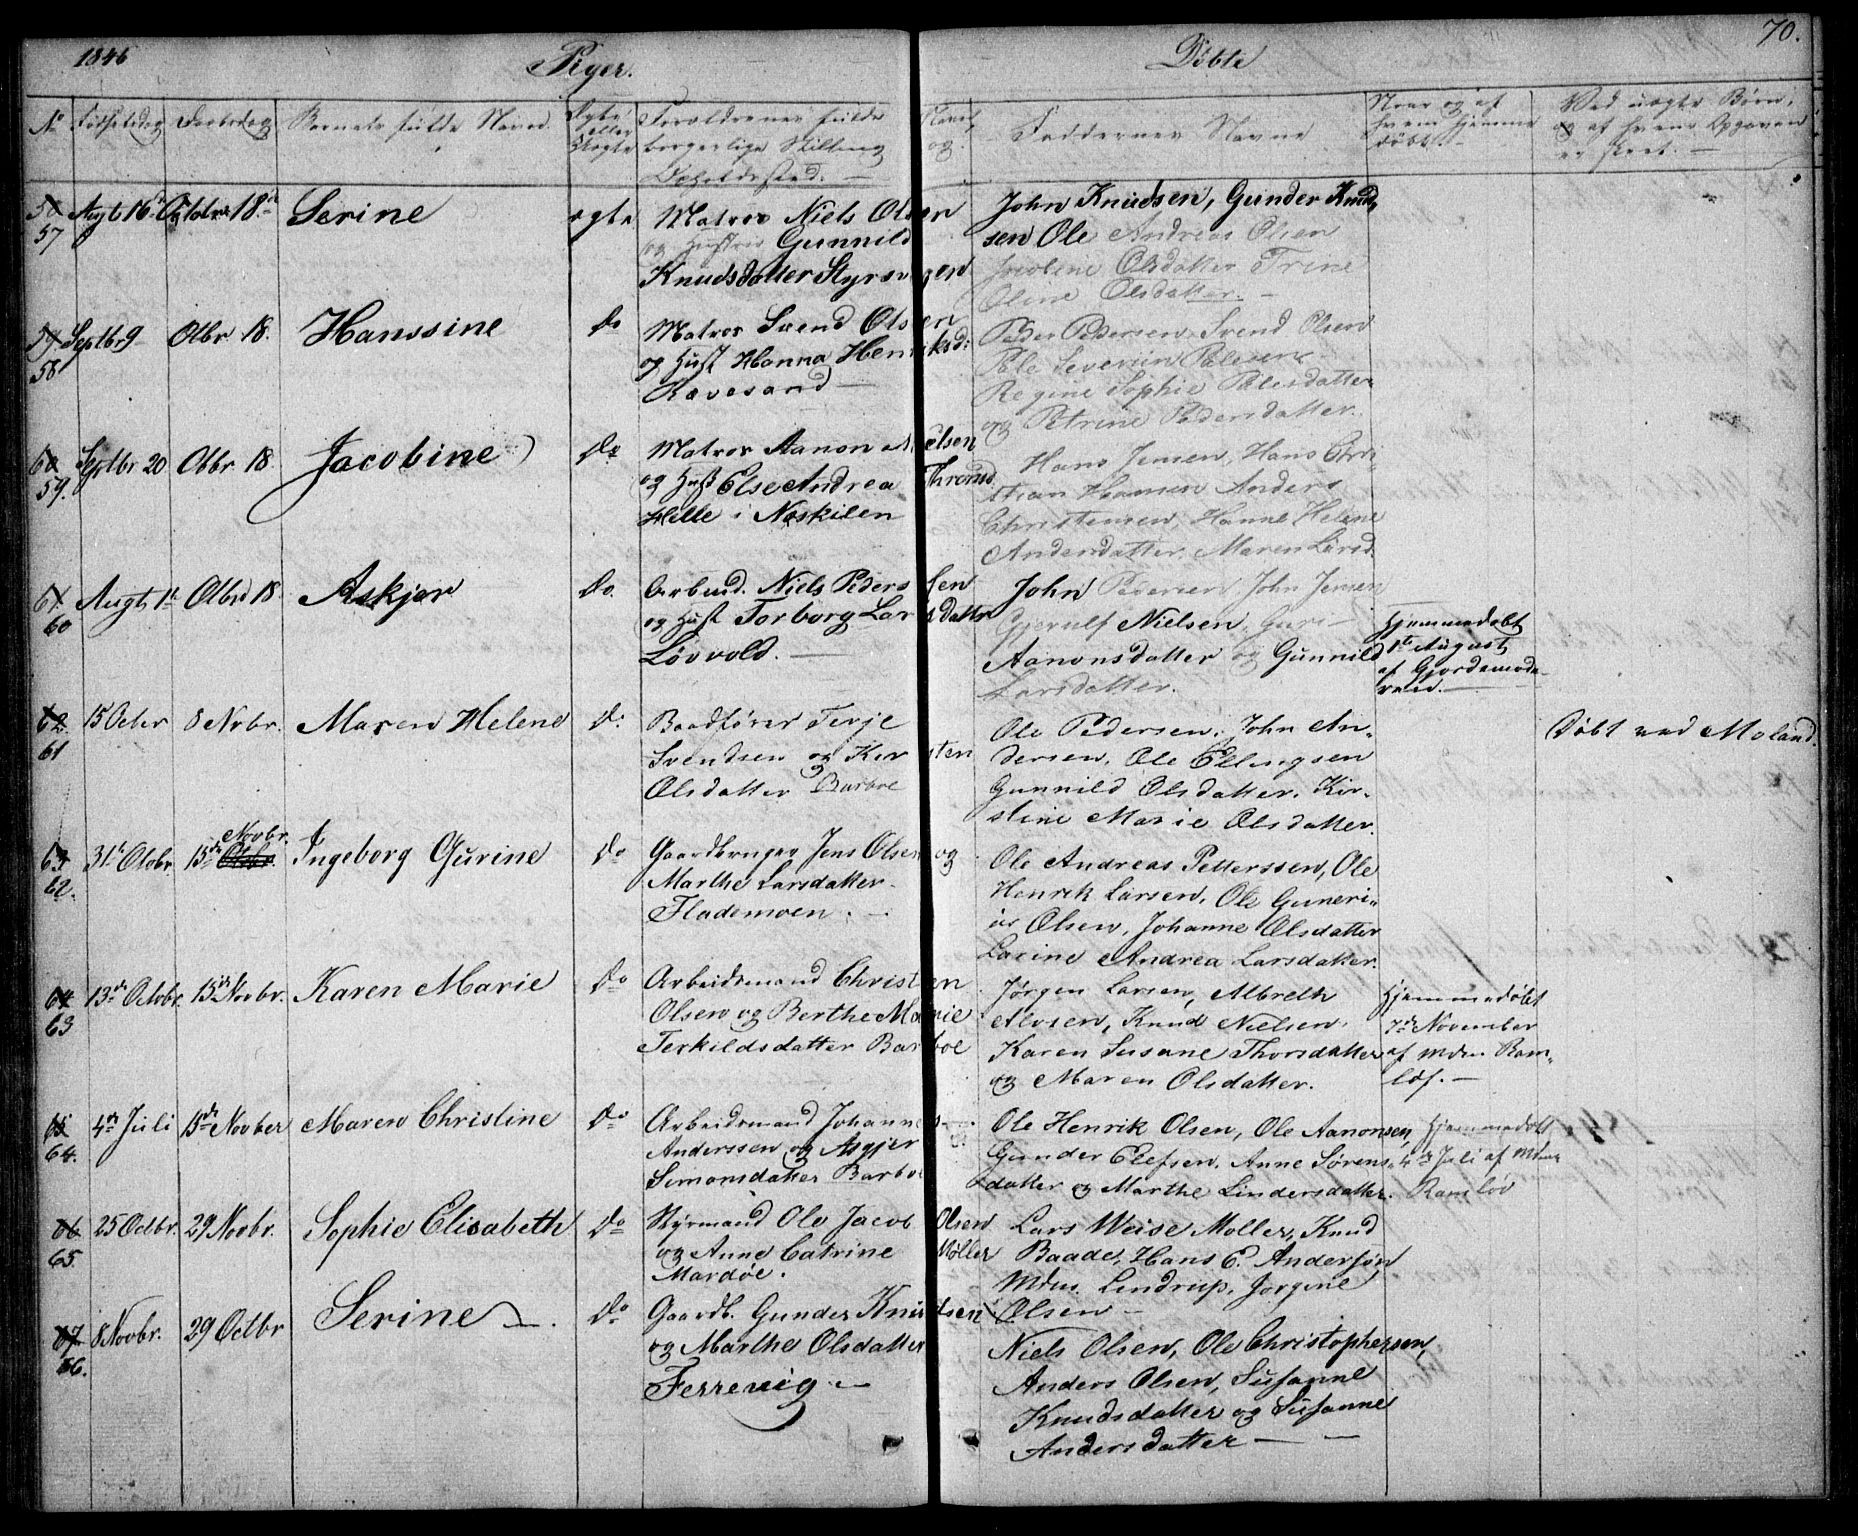 1846 Piger. Döbte 70.
No Födselsdag Daabsdag Barnets fulde Navn. Ægte eller Uægte Forældrenes fulde Navn, borgerlige Stilling og Opholdssted. — Faddernes Navne Naar og af hvem hjemme döbt. Ved uægte Börn, og af hvem Opgaven er skeet. —
58 57 Augt 16de Octobr 18de Serine ægte Matros Niels Olsen
og Hustru Gunnild
Knudsdatter Styrsvigen
John Knudsen, Gunder Knud-
sen Ole Andreas Olsen
Jacobine Olsdatter Trine
Oline Olsdatter. —
59 58 Septbr 9 Otbr 18. Hanssine Do Matros Svend Olsen
og Hust Hanna Henriksd:
Ravesand —
Peder Pedersen, Svend Olsen
Pale Severin Palesen
Regine Sophie Palesdatter
og Petrine Pedersdatter.
60 59. Septbr 20 Otbr 18 Jacobine Do Matros Aanon Nielsen
og Hust Else Andrea Thronds
Helle i Næskilen
Hans Jensen, Hans Chri-
stian Hansen Anders
Christensen, Hanne Helene
Andersdatter, Maren Larsd.
61 60 Augt 1te Otbr 18. Askjer Do. Arbmd. Niels Pedersen
og Hust Torborg Larsdatter
Lövvold. —
John Pedersen, John Jensen
Gjerulf Nielsen, Guri —
Aanonsdatter og Gunnild
Larsdatter.
Hjemmedöbt
1te August
af Gjordemode-
ren. —
62. 61 15 Octbr 8 Nvbr. Maren Helene D: Baadförer Terje
Svendsen og Kirsten
Olsdatter Barboe
Ole Pedersen, John An-
dersen, Ole Ellingsen
Gunnild Olsdatter. Kir-
stine Marie Olsdatter.
Döbt ved Moland.
63 62. 31te Otobr. 15de Octbr. Novbr. Ingeborg Gurine Do Gaardbruger Jens Olsen og
Marthe Larsdatter
Flademoen. —
Ole Andreas Petterssen, Ole
Henrik Larsen, Ole Guneri-
us Olsen, Johanne Olsdatter
Larine Andrea Larsdatter.
64 63 13de Octobr. 15de Novbr. Karen Marie Do Arbeidsmand Christen
Olsen og Berthe Marie
Terkildsdatter Barboe
Jørgen Larsen, Albreth
Alvsen, Knud Nielsen,
Karen Susane Thorsdatter
og Maren Olsdatter.
Hjemmedöbt
7de November
af Mdm. Ram-
löf. —
65 64. 4de Juli 15de Novber Maren Christine Do Arbeidsmand Johannes
Anderssen og Asgjer
Simonsdatter Barboe
Ole Henrik Olsen, Ole Aanonsen,
Gunder Elefsen, Anne Sørens-
datter og Marthe Lindersdatter.
Hjemmedöbt
4de Juli af Mdme
Ramlöv
66 65. 25 Octbr. 29 Novbr. Sophie Elisabeth Do Styrmand Ole Jacob Olsen
og Anne Catrine Møller
Mardöe.
Lars Weise Møller, Knud
Baade, Hans E. Andersøn
Mdm. Lindrup, Jørgine
Olsen —
67. 66. 8 Novbr. 29 Octbr Serine —. Do Gaardb. Gunder Knudsen
og Marthe Olsdatter
Ferrevig —
Niels Olsen, Ole Christophersen,
Anders Olsen, Susanne
Knudsdatter og Susanne
Andersdatter — —